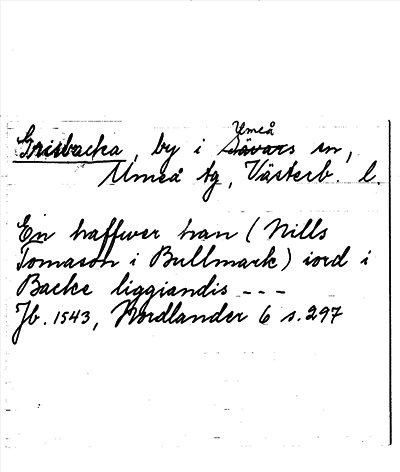 Grisbacka, by i Umeå Sävars sn,
Umeå tg, Västerb. l.
En haffwer han (Nills
Tomason i Bullmark) iord i
Backe liggiandis ---
Jb. 1543, Nordlander 6 s. 297